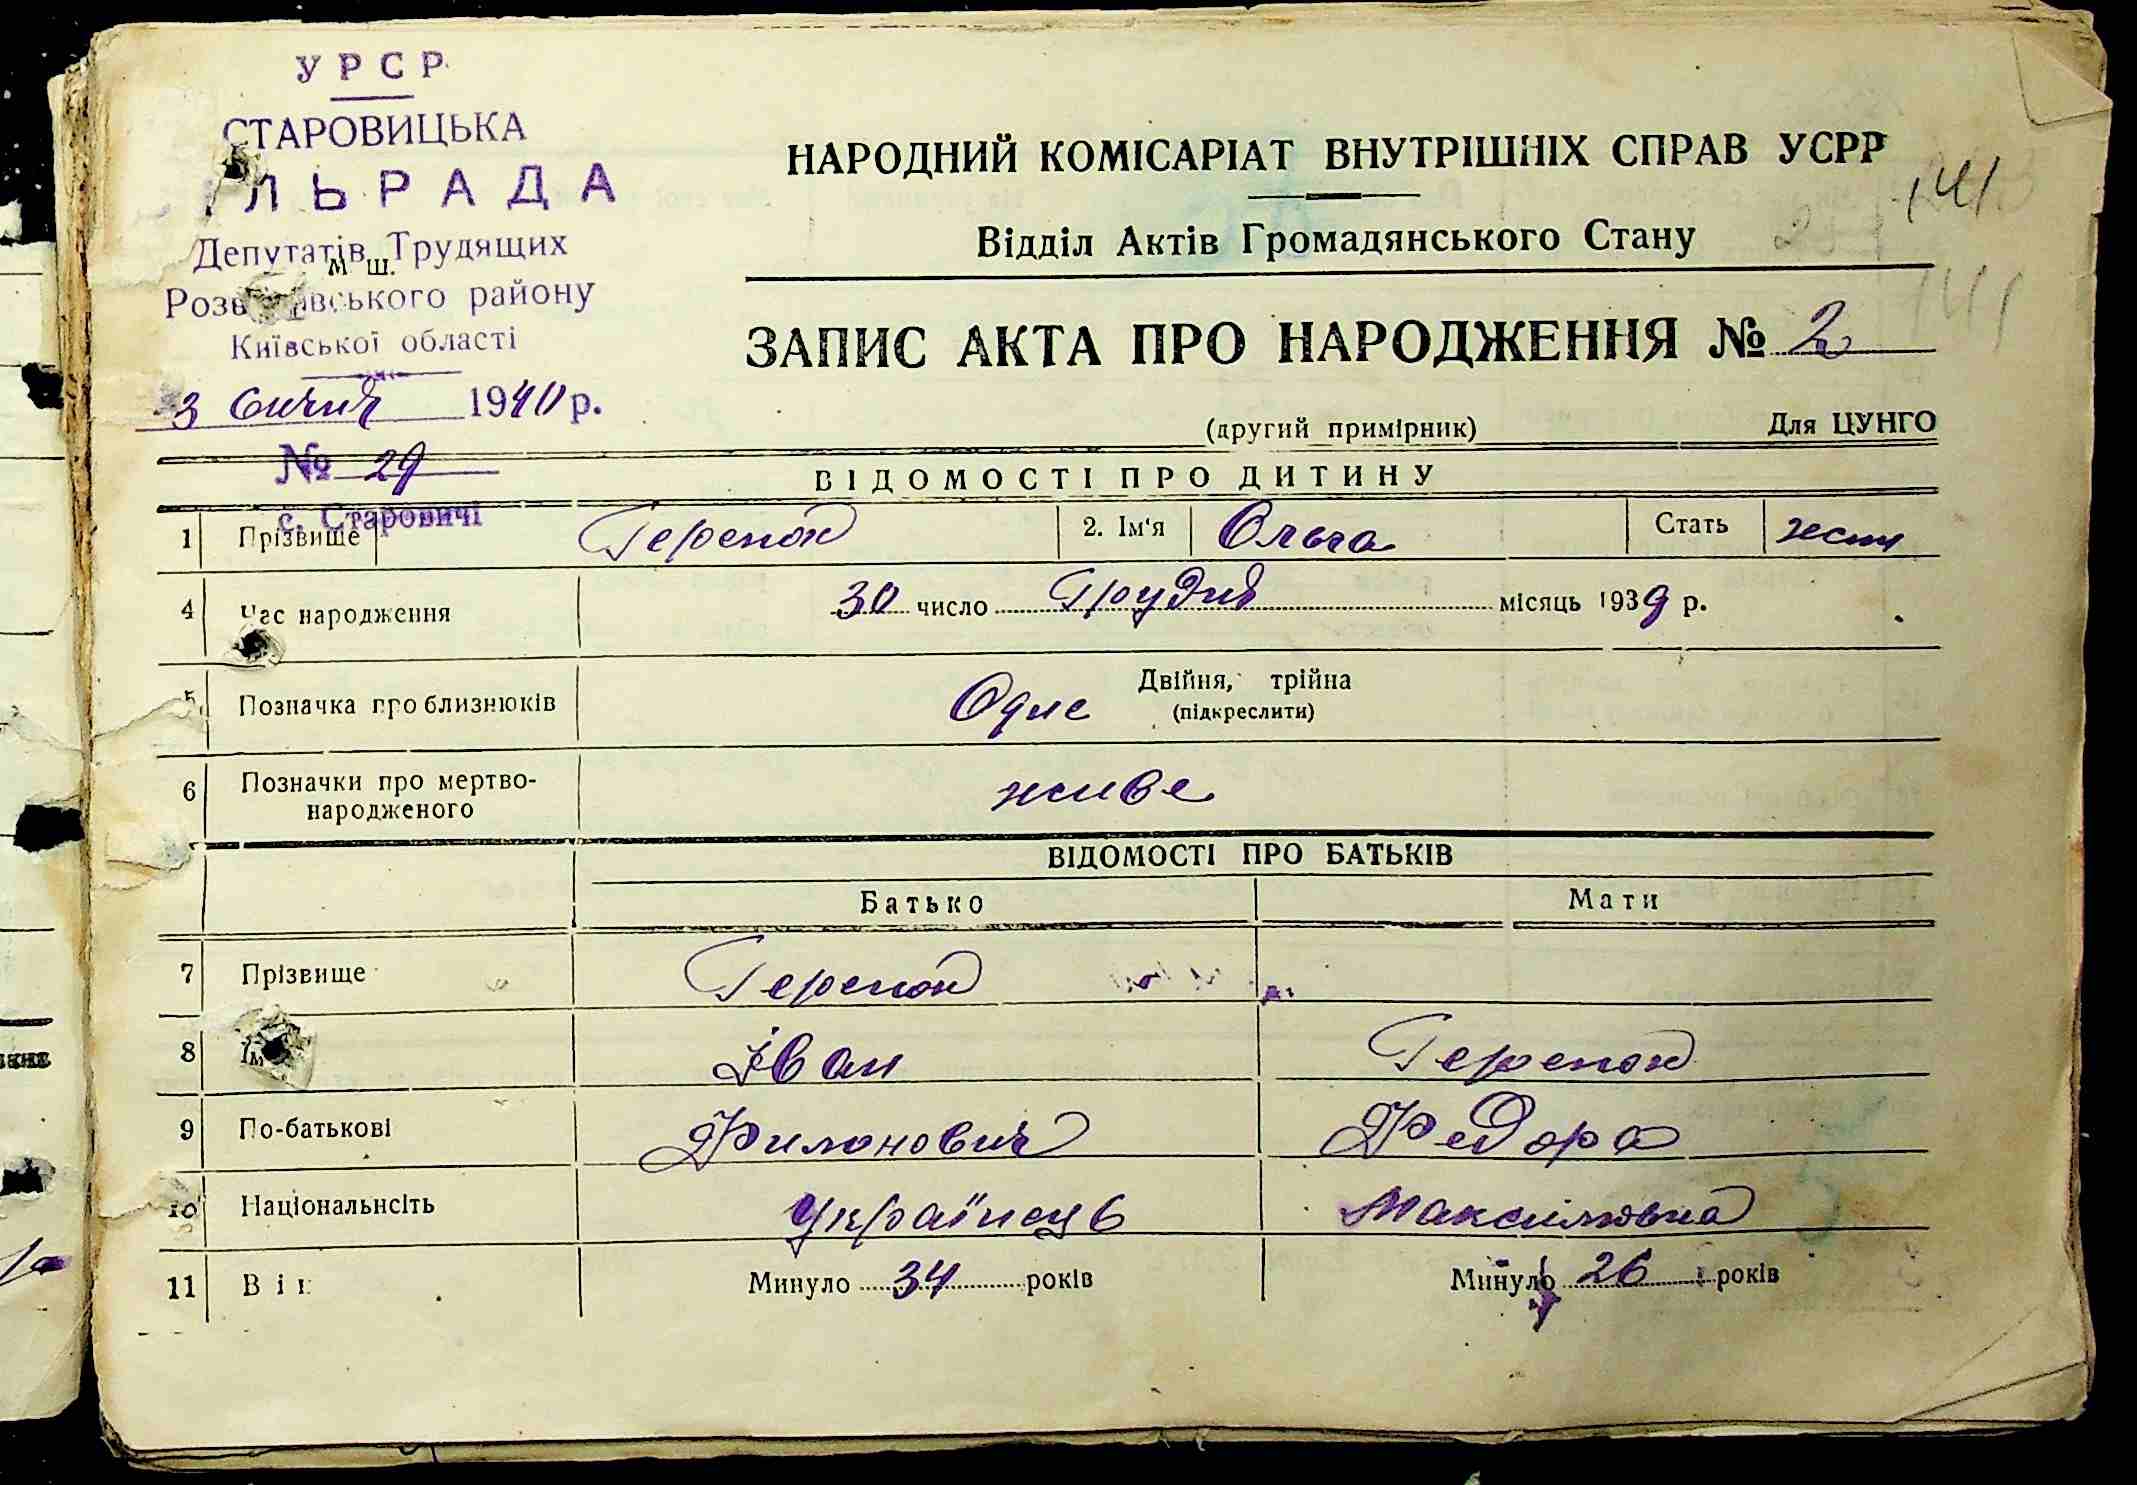 УРСР
СТАРОВИЦЬКА
ЛЬРАДА
Депутатів Трудящих
м ш.
району
Київської області
3 Січня 1940 р.
№ 29
с. Старовичі
НАРОДНИЙ КОМІСАРІАТ ВНУТРІШНІХ СПРАВ УСРР
141
Відділ Актів Громадянського Стану
141
ЗАПИС АКТА ПРО НАРОДЖЕННЯ № 2
(другий примірник) Для ЦУНГО
ВІДОМОСТІ ПРО ДИТИНУ
1 Прізвище Герепон 2. Ім'я Ольга Стать жепт
4 Час народження 30 число Грудня місяць 1939 р.
5 Позначка про близнюків Одне Двійня, трійна
(підкреслити)
6 Позначки про мертво-
народженого живе
ВІДОМОСТІ ПРО БАТЬКІВ
Батько Мати
7 Прізвище Герепон
8 Ім Іван Герепон
9 По-батькові Филонович Федора
10 Національнсіть Українець Максимовна
11 Вік Минуло 34 років Минуло 26 років